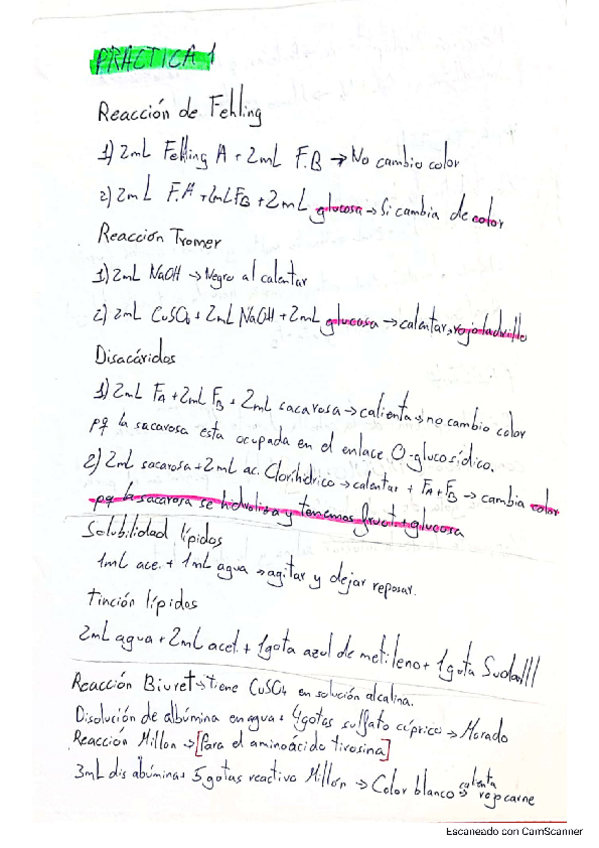 PRACTICA 1
Reacción de Fehling
1) 2mL Fehling A + 2mL F.B → No cambio color
2) 2mL F.A + 2mL FB + 2mL glucosa → Si cambia de color
Reacción Tromer
1) 2mL NaOH → Negro al calentar
2) 2mL CuSO4 + 2mL NaOH + 2mL glucosa → calentar, rojo ladrillo
Disacáridos
1) 2mL FA + 2mL FB + 2mL sacarosa → calienta → no cambio color
pq la sacarosa esta ocupada en el enlace O-glucosídico.
2) 2mL sacarosa + 2mL ac. Clorihidrico → calentar + FA + FB → cambia color
pq la sacarosa se hidroliza y tenemos fruct. + glucosa
Solubilidad lípidos
1mL ace. + 1mL agua → agitar y dejar reposar.
Tinción lípidos
2mL agua + 2mL acet. + 1gota azul de metileno + 1gota Sudan III
Reacción Biuret → tiene CuSO4 en solución alcalina.
Disolución de albúmina en agua + 4gotas sulfato cúprico → Morado
Reacción Millon → [Para el aminoácido tirosina]
3mL dis abúmina + 5gotas reactivo Millon → Color blanco calienta → rojo carne
Escaneado con CamScanner